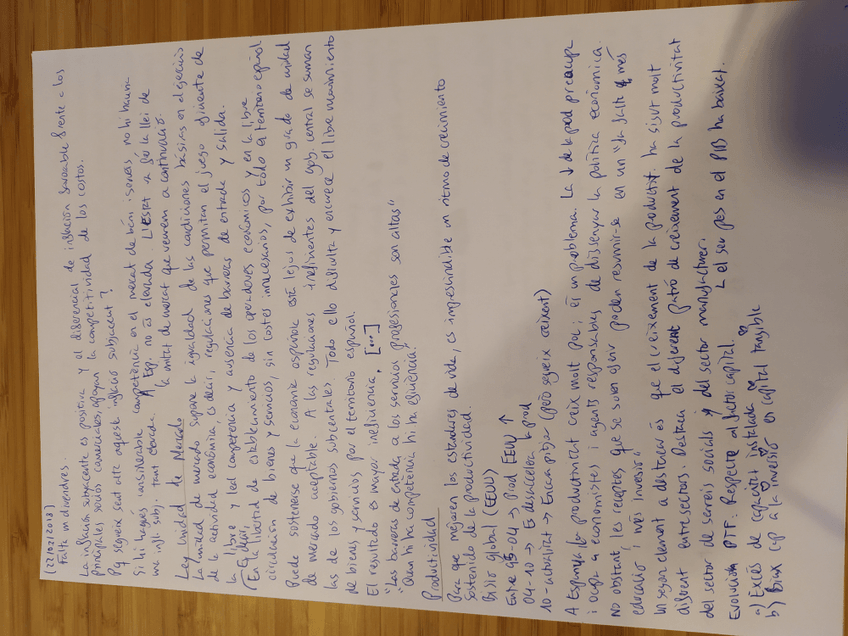 [22/03/2018]
Falta un divendres.
La inflación subyacente es positiva y el diferencial de inflación favorable frente a los
principales socios comerciales, apoyan la competitividad de los costos.
Pq segueix sent alta aquest inflació subjacent?
Si hi hagués considerable competència en el mercat de béns i serveis no hi hauria
una infl. subj. tant elevada. A Esp. no és elevada. L'Estat va fer la llei de
la unitat de mercat que veurem a continuació.
Ley Unidad de Mercado
La unidad de mercado supone la igualdad de las condiciones básicas en el ejercicio
de la actividad económica, es decir, regulaciones que permitan el juego eficiente de
la libre y leal competencia y ausencia de barreras de entrada y salida.
Es decir,
"En la libertad de establecimiento de los operadores económicos y en la libre
circulación de bienes y servicios, sin costes innecesarios, por todo el territorio español
Puede sostenerse que la economía española está lejos de exhibir un grado de unidad
de mercado aceptable. A las regulaciones ineficientes del gob. central se suman
las de los gobiernos subcentrales. Todo ello dificulta y encarece el libre movimiento
de bienes y servicios por el territorio español.
El resultado es mayor ineficiencia. [...]
"Las barreras de entrada a los servicios profesionales son altas"
"Quan hi ha competència hi ha eficiència"
Productividad
Para que mejoren los estándares de vida, es imprescindible un ritmo de crecimiento
sostenido de la productividad.
Visió global (EEUU)
Entre 95-04 → Prod EEUU ↑
04-10 → Es desaccelera la prod
10-actualitat → Encara pitjor (però segueix creixent)
A Espanya la productivitat creix molt poc: és un problema. La ↓ de la prod preocupa
i ocupa a economistes i agents responsables de dissenyar la política econòmica.
No obstant les receptes que se solen oferir poden resumir-se en un "fa falta + més
educació i més inversió"
Un segon element a destacar és que el creixement de la productivt. ha sigut molt
diferent entre sectors. Destaca el diferent patró de creixement de la productivitat
del sector de serveis socials y del sector manufacturer.
Evolución PTF: Respecte al factor capital. ↳ el seu pes en el PIB ha baixat.
a) Excés de capacitat instalada
b) Biaix cap a la inversió en capital tangible